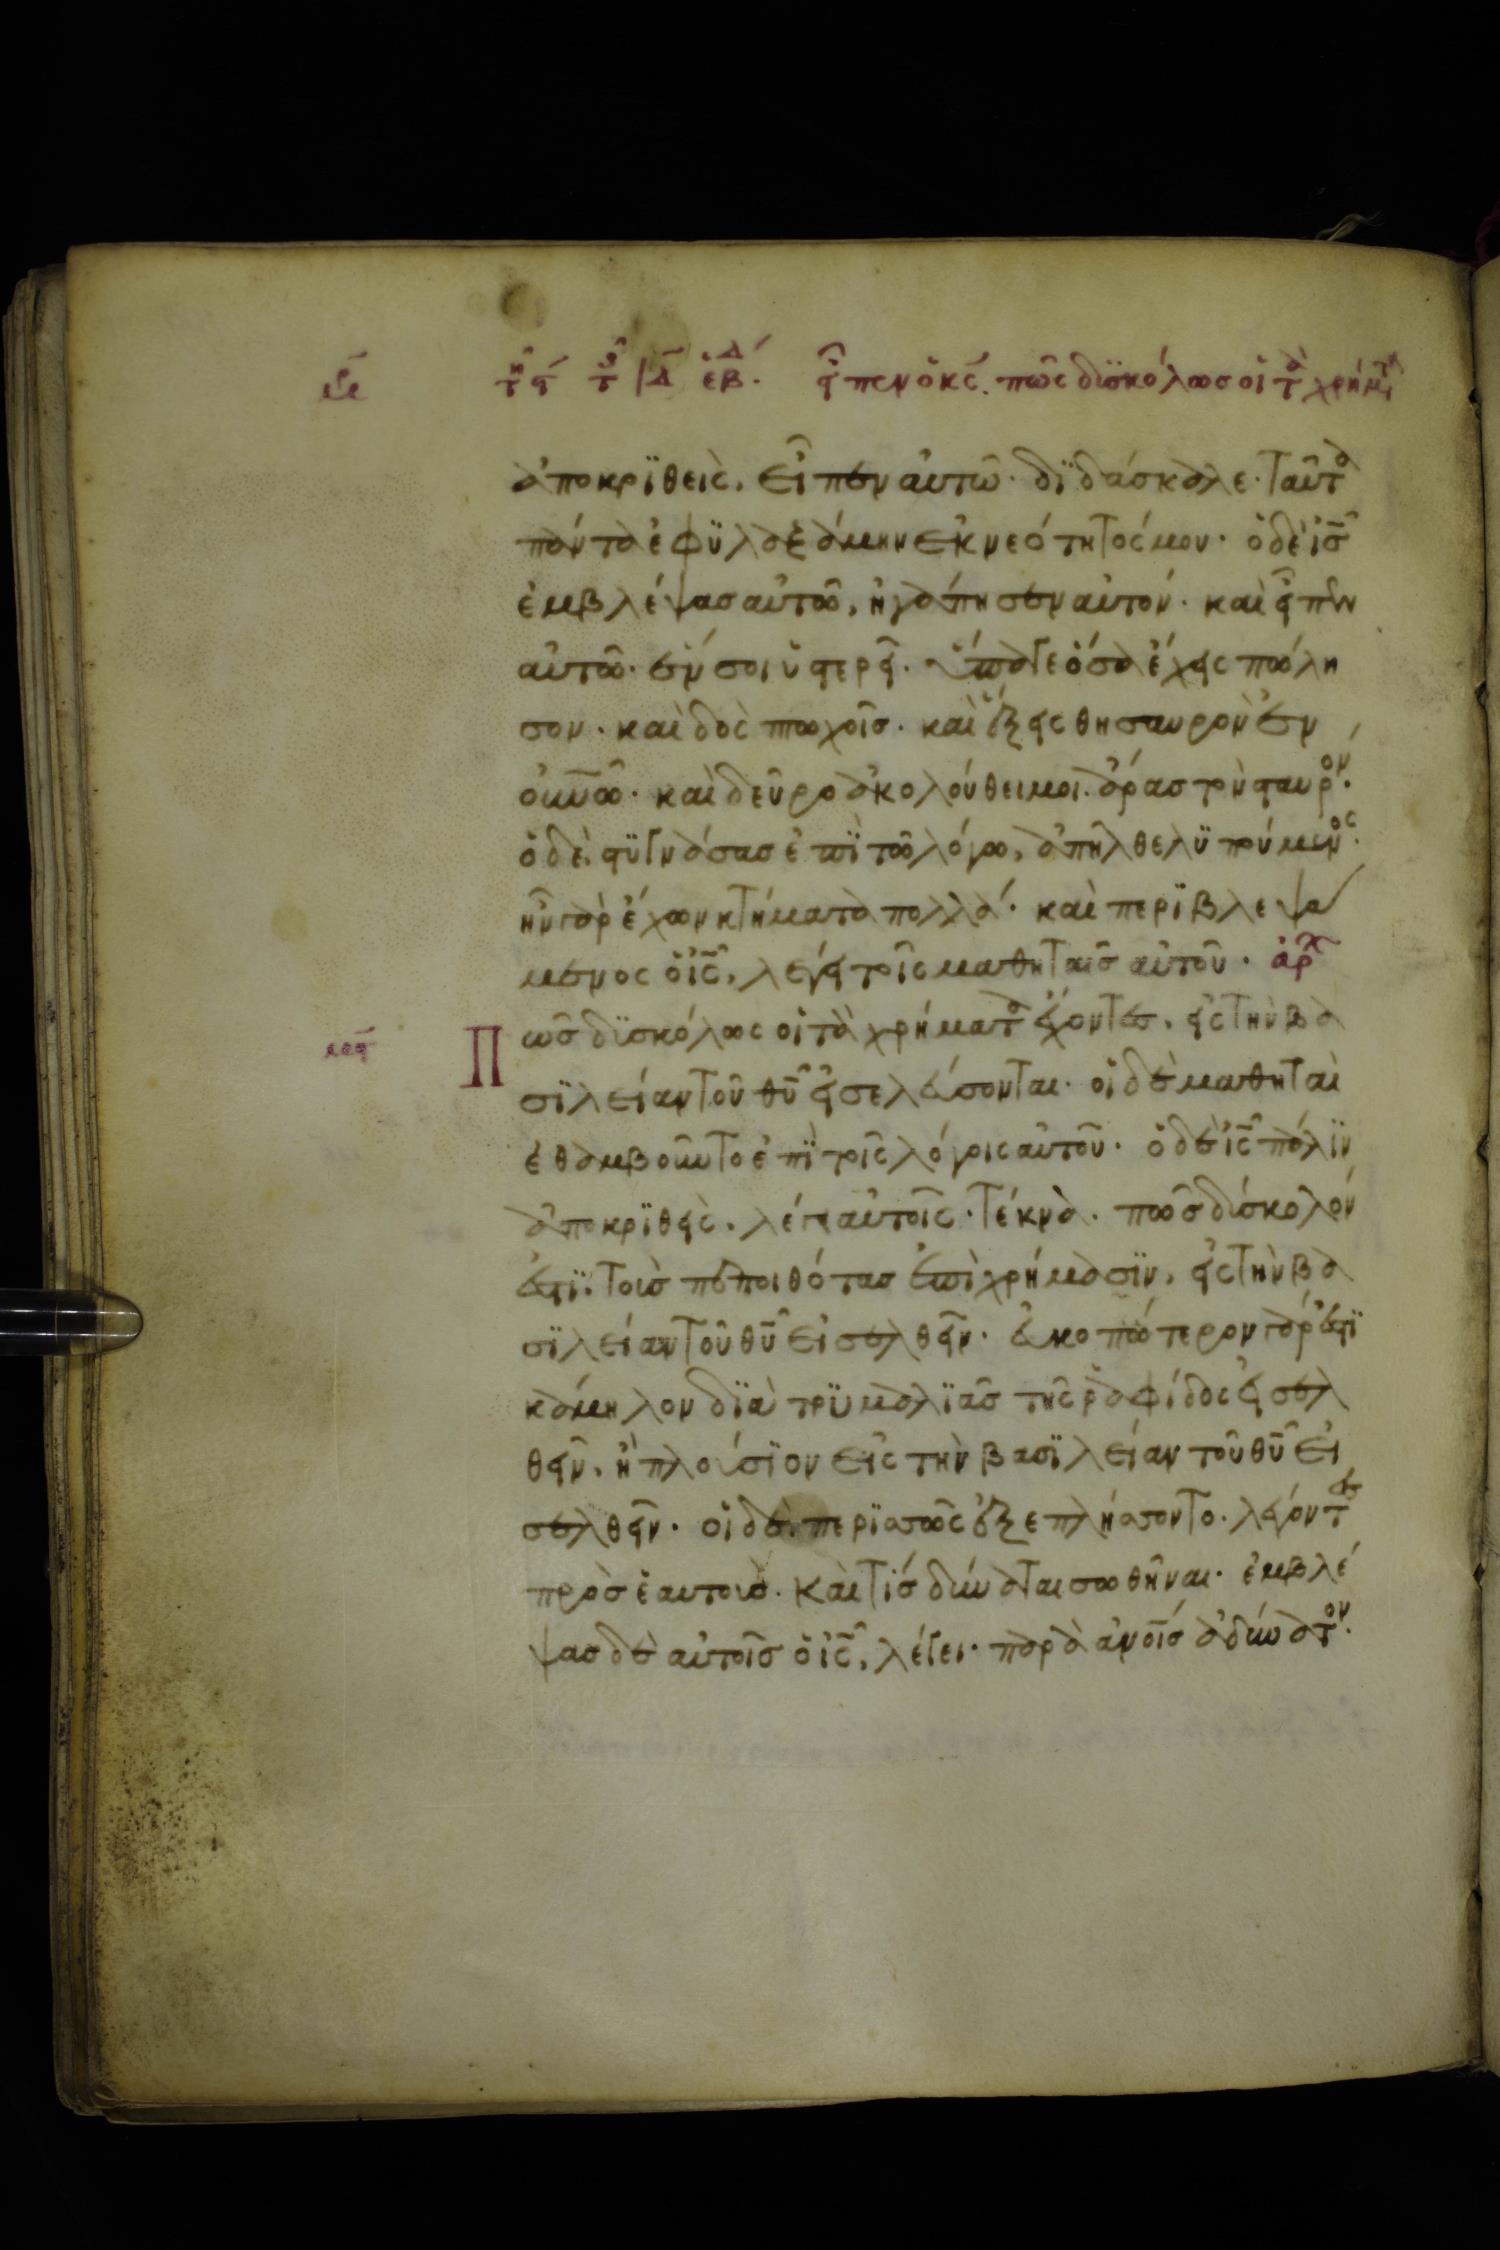 εἶπεν ὁ κς πῶς δϊσκόλωσ οἱ τὰ χρήματ
ἀποκρϊθεὶς, εἶπεν αὐτῶ· δϊδάσκαλε· ταῦτα
πάντα ἐφϋλαξάμην ἐκ νεότητός μου· ὁ δὲ ἰσ
ἐμβλέψασ αὐτῶ, ἠγάπησεν αὐτόν· καὶ εἶπεν
αὐτῶ· ἕν σοι ὑστερεῖ· ὕπαγε ὅσα ἔχεις πώλη
σον· καὶ δὸς πτωχοῖσ· καὶ ἕξεις θησαυρὸν ἐν
οὐνῶ· καὶ δεῦρο ἀκολούθει μοι ἄρασ τὸν σταυρόν·
ὁ δὲ στϋγνάσασ ἐπῒ τῶ λόγω, ἀπῆλθε λϋπούμενος·
ἦν γὰρ ἔχων κτήματα πολλά· καὶ περϊβλεψά
μενος ὁ ις, λέγει τοῖς μαθηταῖσ αὐτοῦ· ἀρχ
Πῶσ δϊσκόλως οἱ τὰ χρήματα ἔχοντεσ, εἰς τὴν βα
σϊλείαν τοῦ θυ εἰσελεύσονται· οἱ δὲ μαθηταὶ
ἐθαμβοῦντο ἐπῒ τοῖς λόγοις αὐτοῦ· ὁ δὲ ις πάλϊν
ἀποκρϊθεὶς, λέγει αὐτοῖς· τέκνα· πῶσ δύσκολόν
ἐστϊ· τοὺσ πεποιθότασ ἐπὶ χρήμασϊν, εἰς τὴν βα
σϊλείαν τοῦ θυ εἰσελθεῖν· εὐκοπώτερον γὰρ ἐστϊ
κάμηλον δϊὰ τρϋμαλϊᾶσ τῆς ῥαφίδος εἰσελ
θεῖν, ἢ πλούσϊον εἰς τὴν βασϊλείαν τοῦ θυ εἰ
σελθεῖν· οἱ δὲ περϊσσῶς ἐξεπλήσσοντο· λέγοντεσ
πρὸσ ἑαυτούσ· καὶ τίσ δύναται σωθῆναι· ἐμβλέ
ψασ δὲ αὐτοῖσ ὁ ις, λέγει· παρὰ ἀνοισ ἀδύνατον·